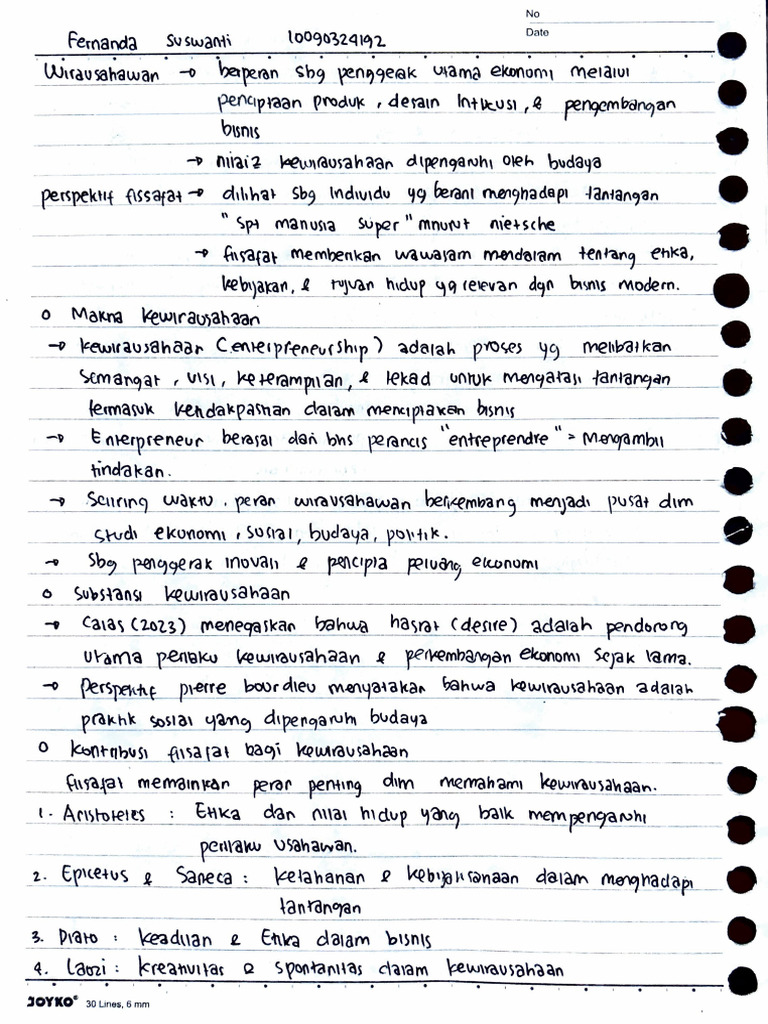 No
Date
Fernanda Suswanti 10090324192
Wirausahawan → berperan sbg penggerak utama ekonomi melalui
penciptaan produk, desain Intitusi, & pengembangan
bisnis
→ nilai2 kewirausahaan dipengaruhi oleh budaya
perspektif fissafat → dilihat sbg individu yg berani menghadapi tantangan
"spt manusia super" mnurut nietsche
→ filsafat memberikan wawasam mendalam tentang etika,
kebijakan, & tujuan hidup yg relevan dgn bisnis modern.
o Makna kewirausahaan
→ kewirausahaan (enterpreneurship) adalah proses yg melibatkan
semangat, visi, keterampilan, & tekad untuk mengatasi tantangan
termasuk kendakpastian dalam menciptakan bisnis
→ Enterpreneur berasal dari bhs perancis "entreprendre" = Mengambil
tindakan.
→ Seiring waktu, peran wirausahawan berkembang menjadi pusat dlm
studi ekonomi, sosial, budaya, politik.
→ Sbg penggerak inovasi & pencipta peluang ekonomi
o Substansi kewirausahaan
→ Calas (2023) menegaskan bahwa hasrat (desire) adalah pendorong
utama perilaku kewirausahaan & perkembangan ekonomi sejak lama.
→ Perspektif pierre bourdieu menyatakan bahwa kewirausahaan adalah
praktik sosial yang dipengaruhi budaya
o kontribusi filsafat bagi kewirausahaan
filsafat memainkan peran penting dlm memahami kewirausahaan.
1. Aristoteles : Etika dan nilai hidup yang baik mempengaruhi
perilaku usahawan.
2. Epicetus & Saneca : ketahanan & kebijaksanaan dalam menghadapi
tantangan
3. Plato : keadilan & Etika dalam bisnis
4. Laozi : kreativitas & spontanitas dalam kewirausahaan
JOYKO® 30 Lines, 6 mm